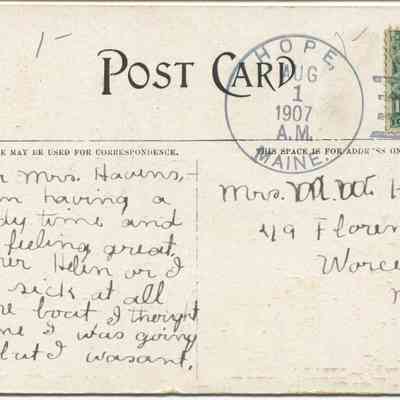 POST CARD
HOPE,
AUG
1
1907
A.M.
MAINE.
E MAY BE USED FOR CORRESPONDENCE.
THIS SPACE IS FOR ADDRESS ON
r Mrs. Havens,-
m having a
dy time and
feeling great,
her Helen or I
sick at all
e boat I thought
me I was going
but I wasant.
Mrs. H
49 Floren
Worce